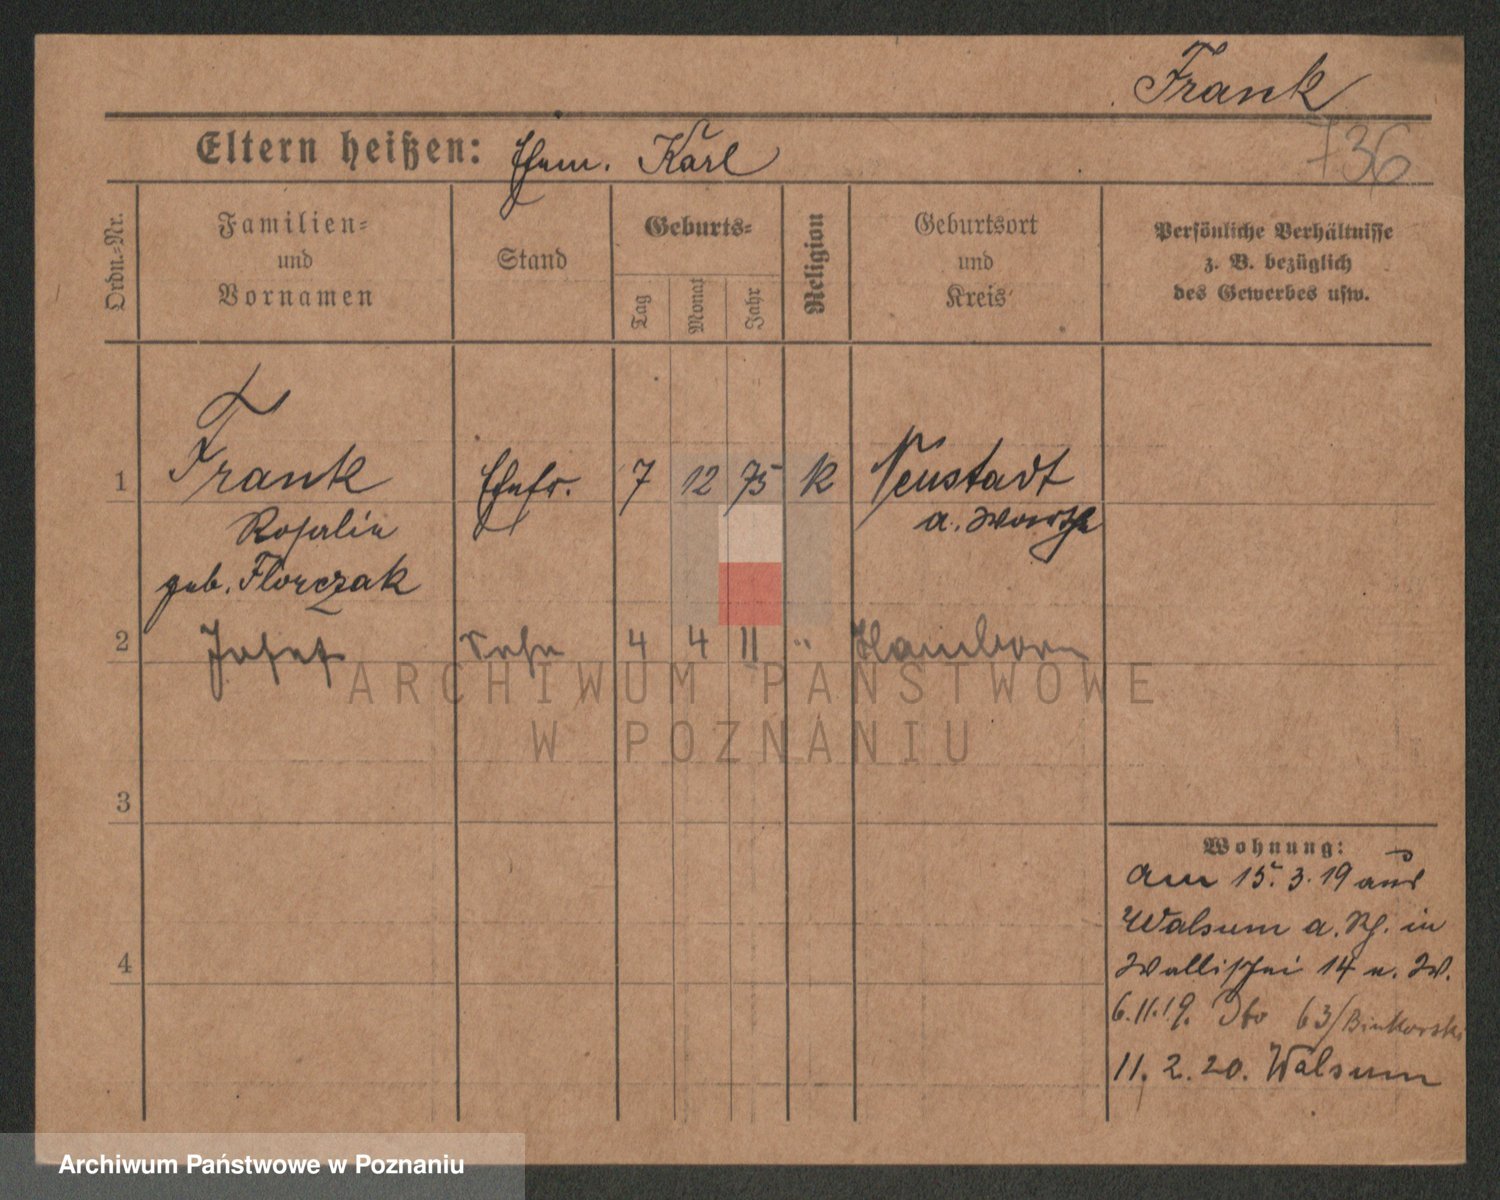 Frank
736
Eltern heißen: Ehem. Karl
Ordn.-Nr.
Familien-
und
Vornamen
Stand
Geburts-
Tag
Monat
Jahr
Religion
Geburtsort
und
Kreis
Persönliche Verhältnisse
z. B. bezüglich
des Gewerbes usw.
1 Frank Ehefr. 7 12 75 k Neustadt
Rosalie a. Warthe
geb. Florczak
2 Josef Sohn 4 4 11 " Hamborn
ARCHIWUM PAŃSTWOWE
W POZNANIU
3
4
Wohnung:
am 15.3.19 aus
Walsum a. Rh. in
Wallischei 14 u. W.
6.11.19. Dto 63/Binkowski
11.2.20. Walsum
Archiwum Państwowe w Poznaniu